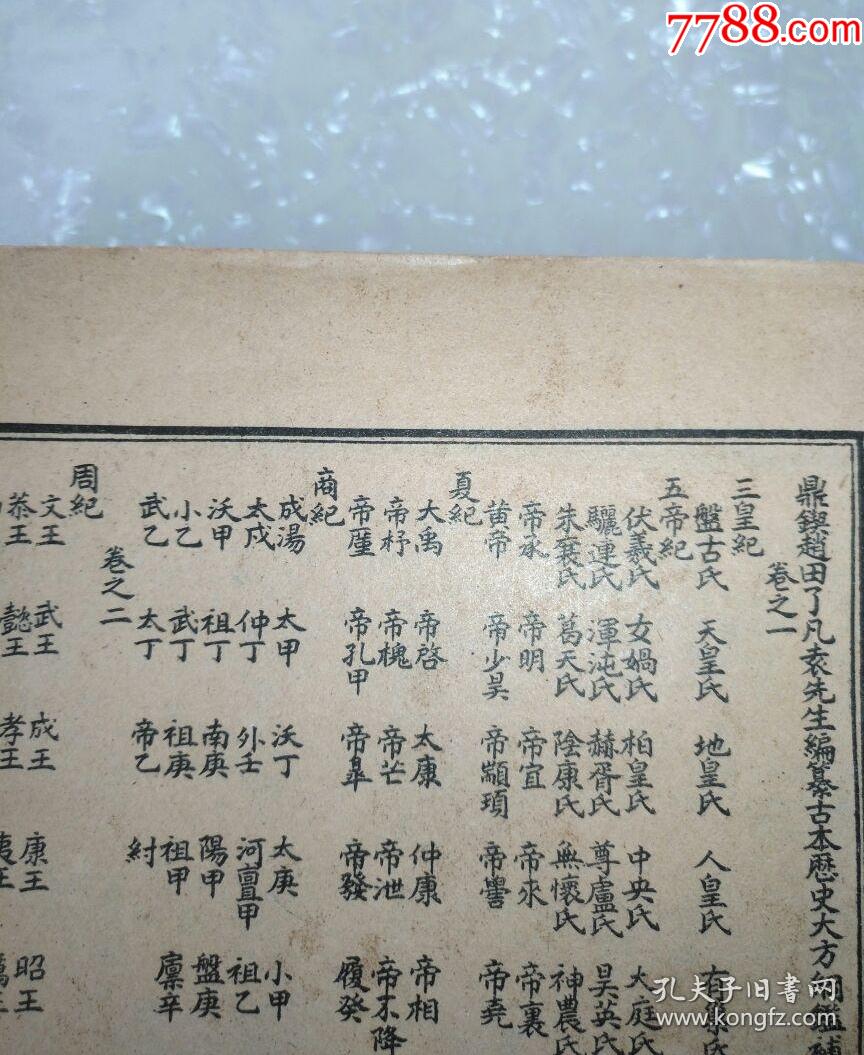 7788.com
鼎鍥趙田了凡袁先生編纂古本歷史大方綱鑑補
卷之一
三皇紀
盤古氏 天皇氏 地皇氏 人皇氏 有巢氏
五帝紀
伏羲氏 女媧氏 柏皇氏 中央氏 大庭氏
驪連氏 渾沌氏 赫胥氏 尊盧氏 昊英氏
朱襄氏 葛天氏 陰康氏 無懷氏 神農氏
帝承 帝明 帝宜 帝來 帝裏
黄帝 帝少昊 帝顓頊 帝嚳 帝堯
夏紀
大禹 帝啓 太康 仲康 帝相
帝杼 帝槐 帝芒 帝泄 帝不降
帝廑 帝孔甲 帝臯 帝發 履癸
商紀
成湯 太甲 沃丁 太庚 小甲
太戊 仲丁 外壬 河亶甲 祖乙
沃甲 祖丁 南庚 陽甲 盤庚
小乙 武丁 祖庚 祖甲 廩辛
武乙 太丁 帝乙 紂
卷之二
周紀
文王 武王 成王 康王 昭王
恭王 懿王 孝王 夷王 厲王
孔夫子旧书网
www.kongfz.com